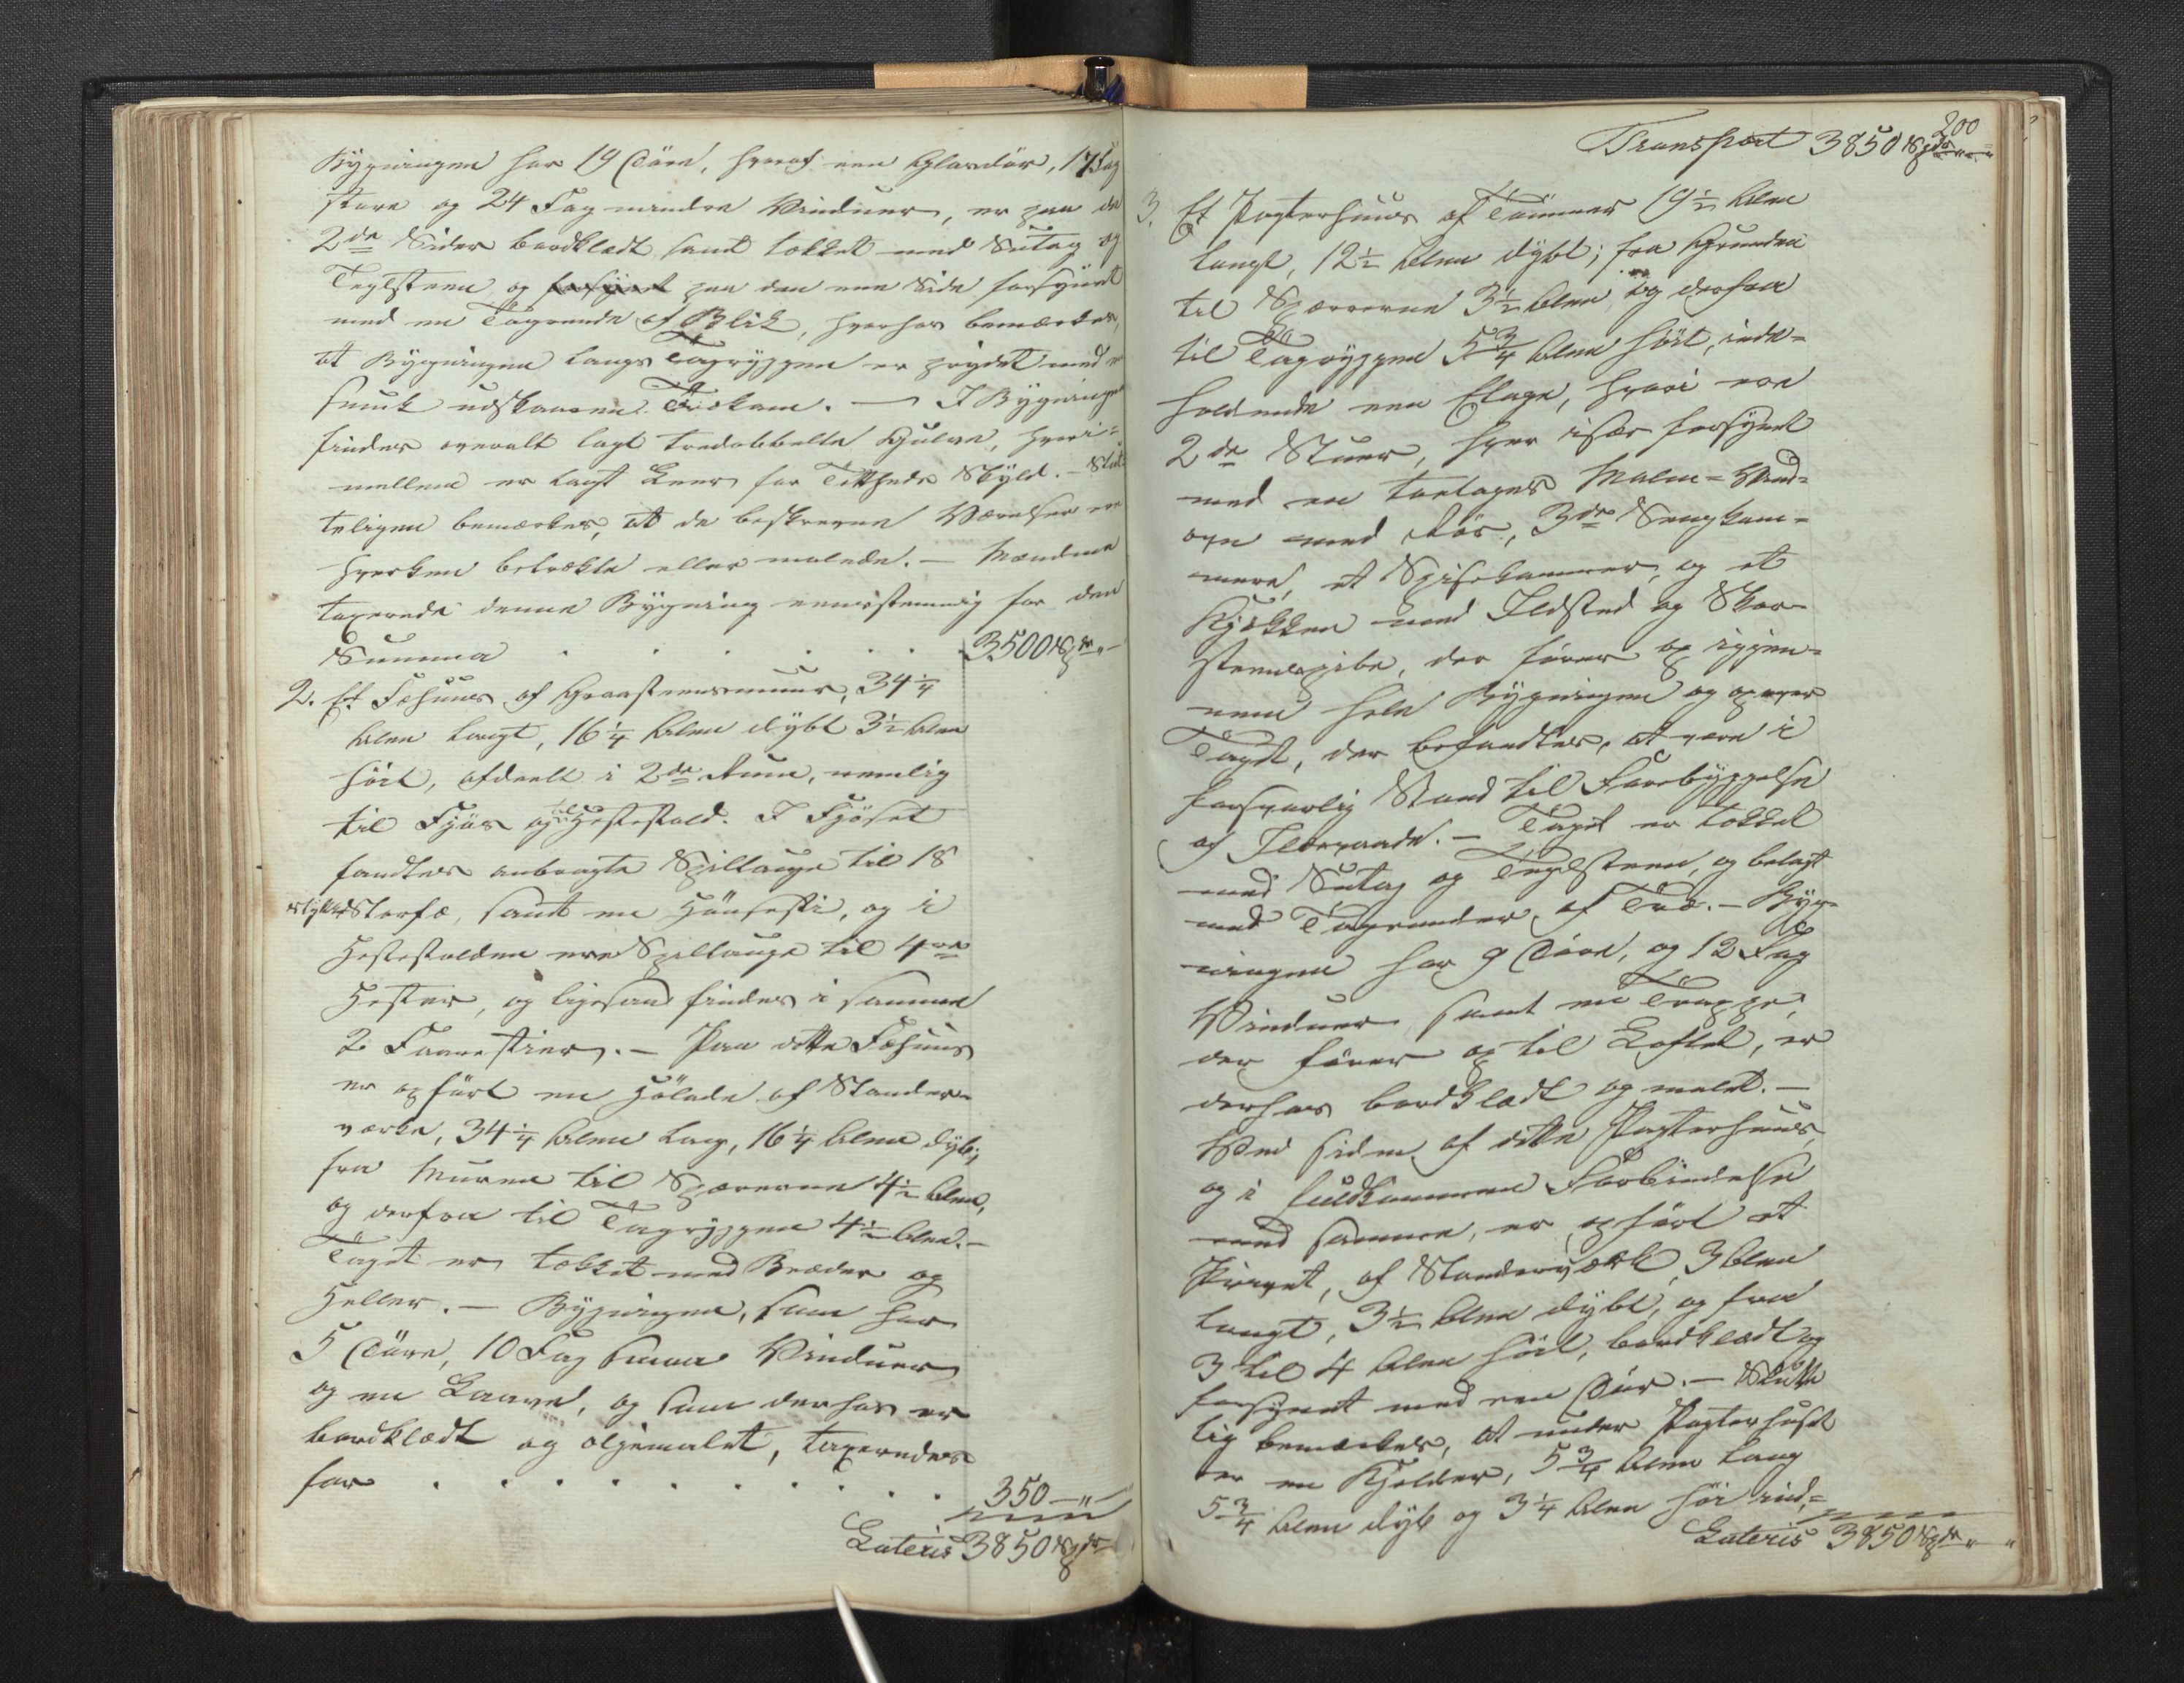 Bygningen har 19 Döre, hvoraf een Glasdör, 17 Fag
store og 24 Fag mindre Vinduer, er paa de
2de Sider bordklædt samt tækket med Sutag og
Teglsteen og forsynet paa den ene Side forsynet
med en Tagrende af Blik, hvorhos bemærkes,
at Bygningen langs Tagryggen er prydet med en
smuk udskaaren Trækam. — I Bygningen
findes overalt lagt tredobbelte Gulve, hvori-
mellem er lagt Leer for Tætheds Skyld. — Slut-
teligen bemærkes, at de beskrevne Værelser ere
hverken betrækte eller malede. — Mændene
taxerede denne Bygning eenstemmig for den
Summa . . . . . . . 3500 Spdr "
2. Et Fæhuus af Graasteensmuur, 34 1/4
Alen langt, 16 1/4 Alen dybt 3 1/2 Alen
höit, afdeelt i 2de Rum, nemlig
til Fjös og til Hestestald. I Fjöset
fandtes anbragte Spilltauge til 18
stykker Storfæ, samt en Hönsesti, og i
Hestestalden ere Spilltauge til 4re
Heste, og ligesaa findes i samme
2 Faarestier. — Paa dette Fæhuus
er opfört en Hölade af Stander-
værke, 34 1/4 Alen lang, 16 1/4 Alen dyb,
fra Muren til Sparrerne 4 1/2 Alen,
og derfra til Tagryggen 4 1/2 Alen. —
Taget er tækket med Bræder og
Heller. — Bygningen, som har
5 Döre, 10 Fag smaa Vinduer
og en Laave, og som derhos er
bordklædt og oljemalet, taxeredes
for . . . . . . . . . 350 — " —
Lateris 3850 Spdr
200
Transport 3850 Spdr " "
3. Et Pagterhuus af Tömmer 19 1/2 Alen
langt, 12 1/2 Alen dybt; fra Grunden
til Sparrerne 3 1/2 Alen, og derfra
til Tagryggen 5 3/4 Alen höit, inde-
holdende een Etage, hvori ere
2de Stuer, hver især forsynet
med en toetages Malm-Vind-
ovn med Rör, 3de Sengkam-
mere, et Spisekammer, og et
Kjökken med Ildsted og Skor-
steenspibe, der förer op igjen-
nem hele Bygningen og op over
Taget, der befandtes, at være i
forsvarlig Stand til Forebyggelse
af Ildsvaade. — Taget er tækket
med Sutag og Teglsteen, og belagt
med Tagrender af Træ. — Byg-
ningen har 9 Döre, og 12 Fag
Vinduer samt en Trappe,
der förer op til Loftet, er
derhos bordklædt og malet. —
Ved Siden af dette Pagterhuus,
og i fuldkommen Forbindelse
med samme, er opfört et
Privet, af Standerværk, 3 Alen
langt, 3 1/2 Alen dybt, og fra
3 til 4 Alen höit, bordklædt og
forsynet med een Dör. — Slutte
lig bemærkes, at under Pagterhuset
er en Kjelder, 5 3/4 Alen lang
5 3/4 Alen dyb og 3 1/4 Alen höi ind-
Lateris 3850 Spdr " "